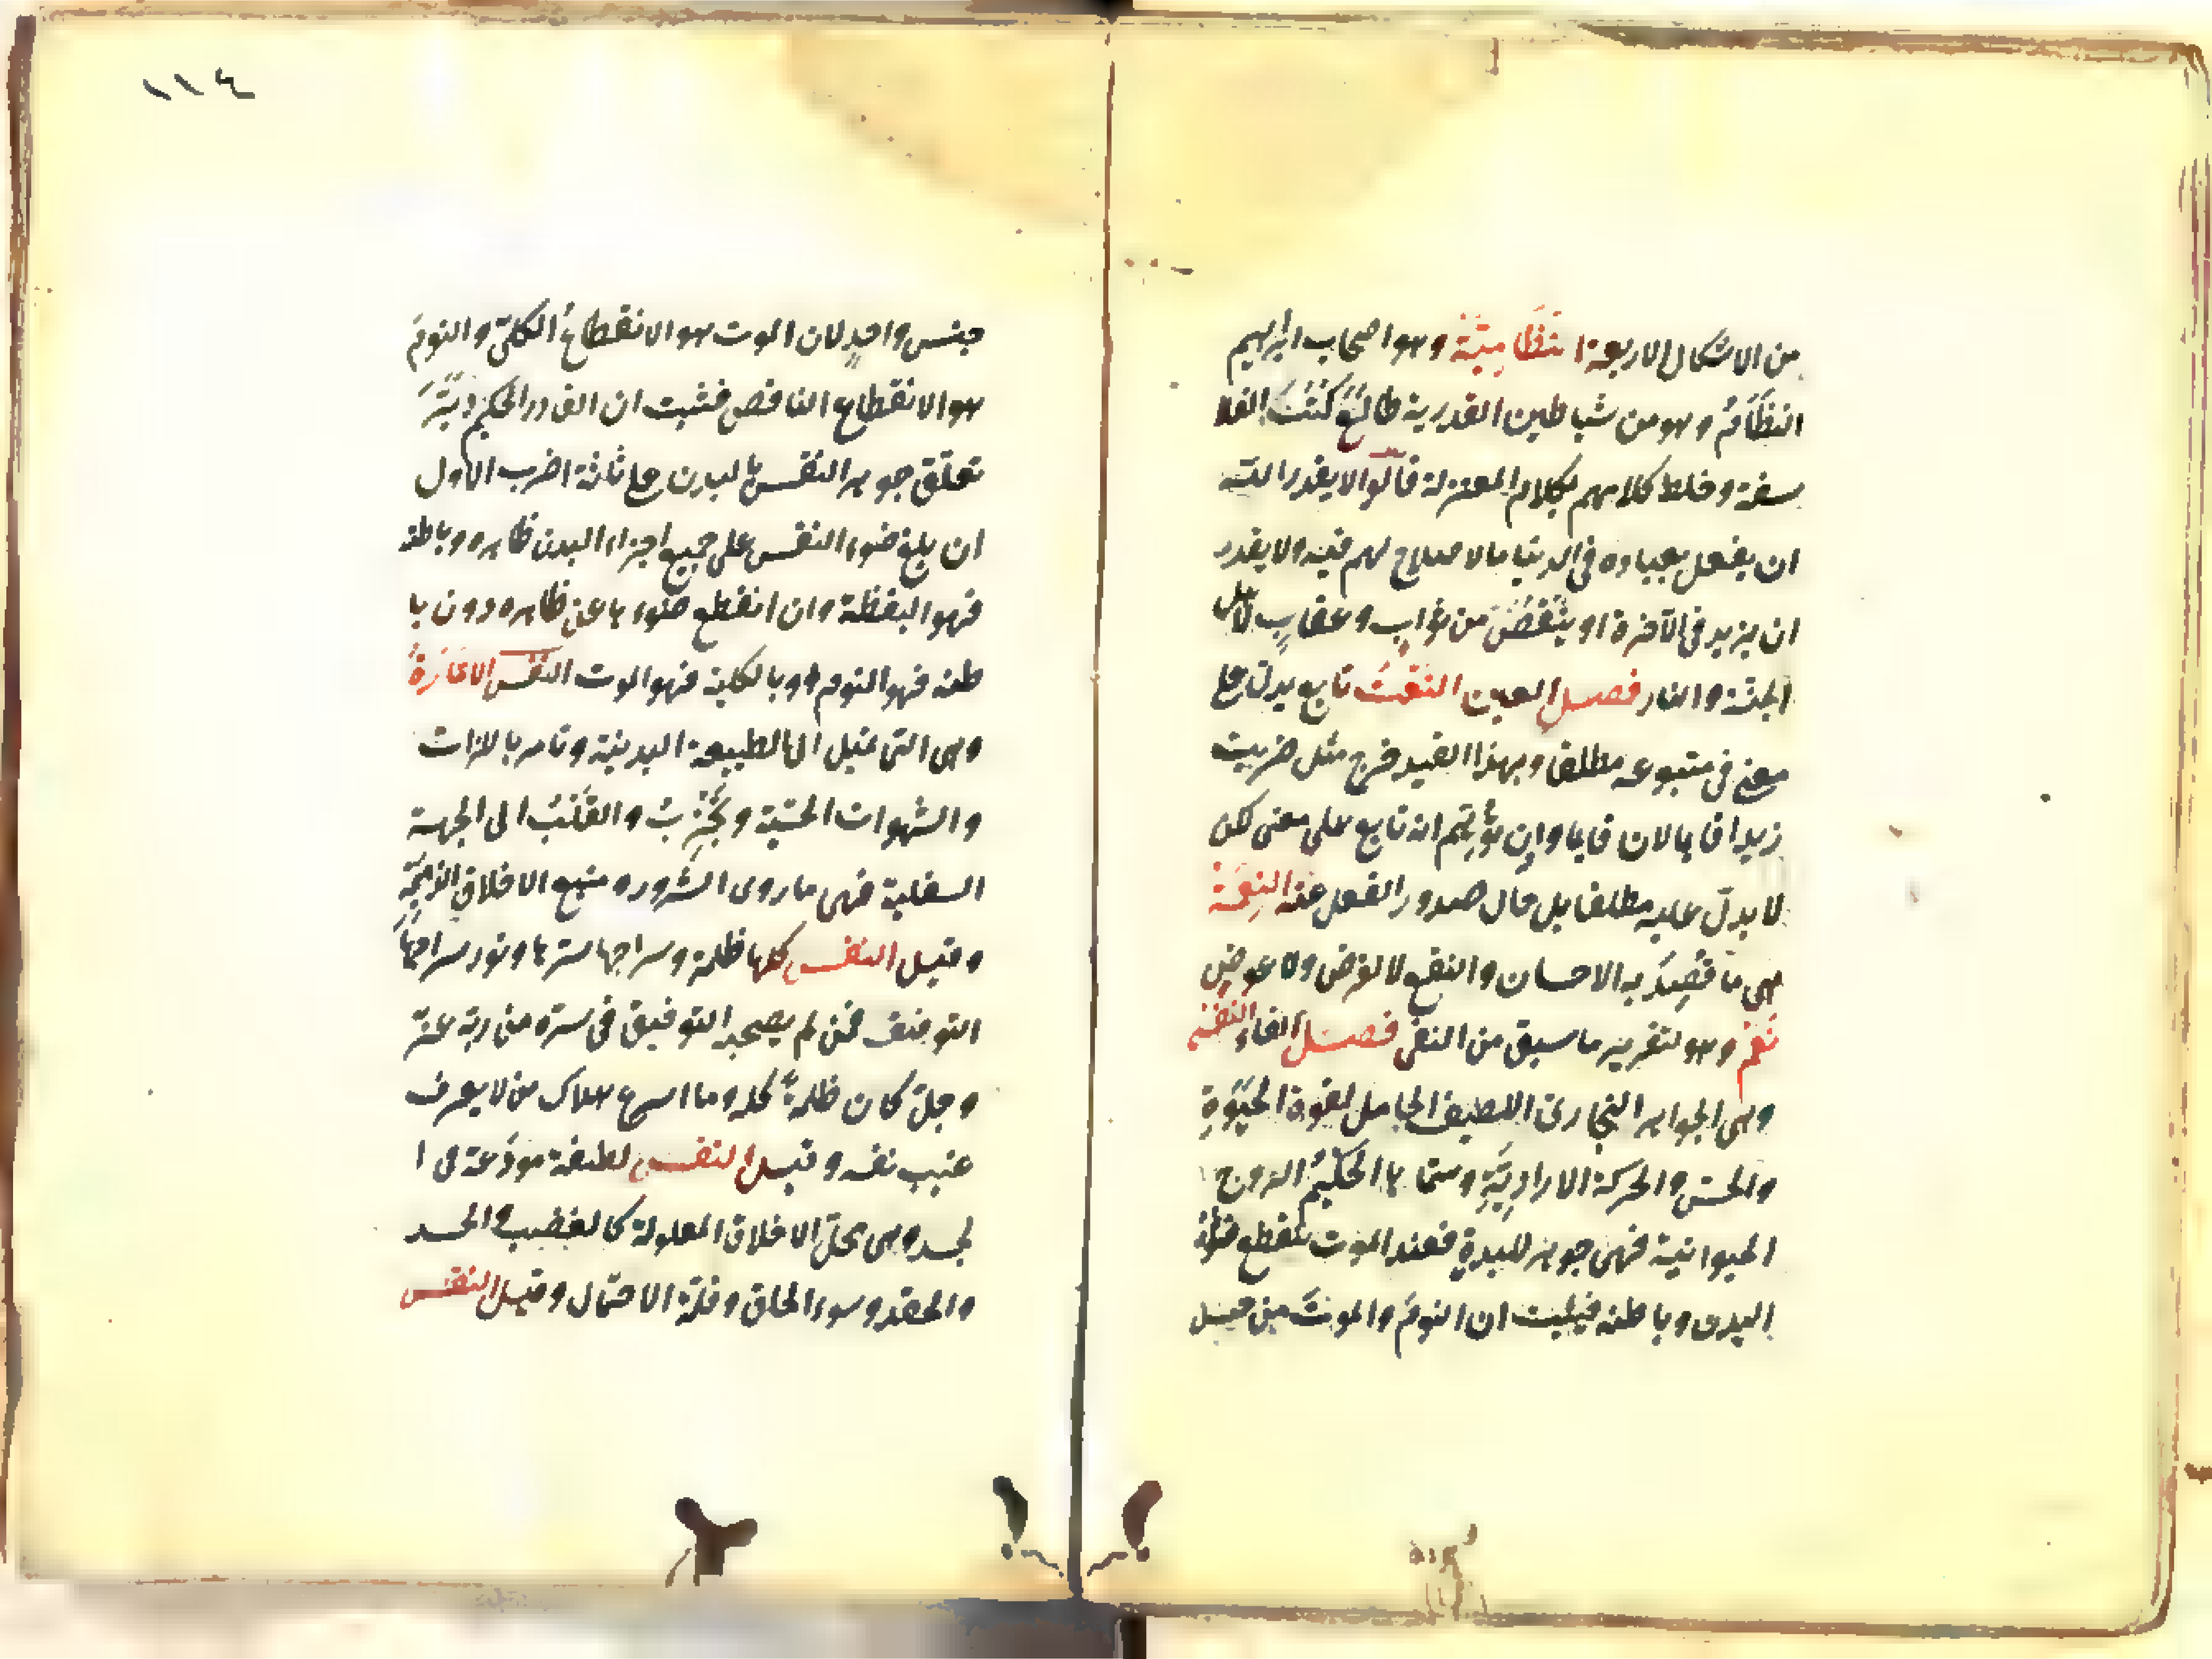 من الاشكال الاربعة النظامية وهو اصحاب ابراهيم
النظام وهو من شياطين القدرية طالع كتب الفلا
سفة وخلط كلامهم بكلام المعتزلة قالوا لا يقدر الله
ان يفعل بعباده في الدنيا ما لا صلاح لهم فيه ولا يقدر
ان يزيد في الآخرة او ينقص من ثواب وعقاب لاهل
الجنة والنار فصل العين النعت تابع يدل على
معنى في متبوعه مطلقا وبهذا القيد خرج مثل ضربت
زيدا قايما لان قايما وان توهم انه تابع على معنى لكن
لا يدل عليه مطلقا بل حال صدور الفعل عنه النعمة
هي ما قصد به الاحسان والنفع لا لغرض ولا عوض
نعم وهو لتقرير ما سبق من النفى فصل الفاء النفس
وهى الجواهر البخارى اللطيف الحامل لقوة الحيوة
والحس والحركة الارادية وسماها الحكيم الروح
الحيوانية فهى جوهر للبدن فعند الموت ينقطع ضوئه
البدن وباطنه فيثبت ان النوم والموت من
جنس واحد لان الموت هو الانقطاع الكلى والنوم
هو الانقطاع الناقص فثبت ان القادر الحكيم دبّر
تعلق جوهر النفس بالبدن على ثلثة اضرب الاول
ان بلغ ضوء النفس على جميع اجزاء البدن ظاهره وباطنه
فهو اليقظة وان انقطع ضوءها عن ظاهره دون با
طنه فهو النوم او بالكلية فهو الموت النفس الامارة
وهى التى تميل الى الطبيعة البدنية وتامر باللذات
والشهوات الحسية وتجذب والقلب الى الجهة
السفلية فهى ماوى الشرور ومنبع الاخلاق الذميمة
وقيل النفس كلها ظلمة وسراجها سترها ونور سراجها
التوفيق فمن لم يصحبه التوفيق فى ستره من ربه عز
وجل كان ظلمة كله وما اسرع هلاك من لا يعرف
عيب نفسه وقيل النفس لطيفة مودعة فى ا
لجسد وهى محل الاخلاق المعلولة كالغضب والحسد
والحقد وسوء الخلق وقلة الاحتمال وقيل النفس
١١٤